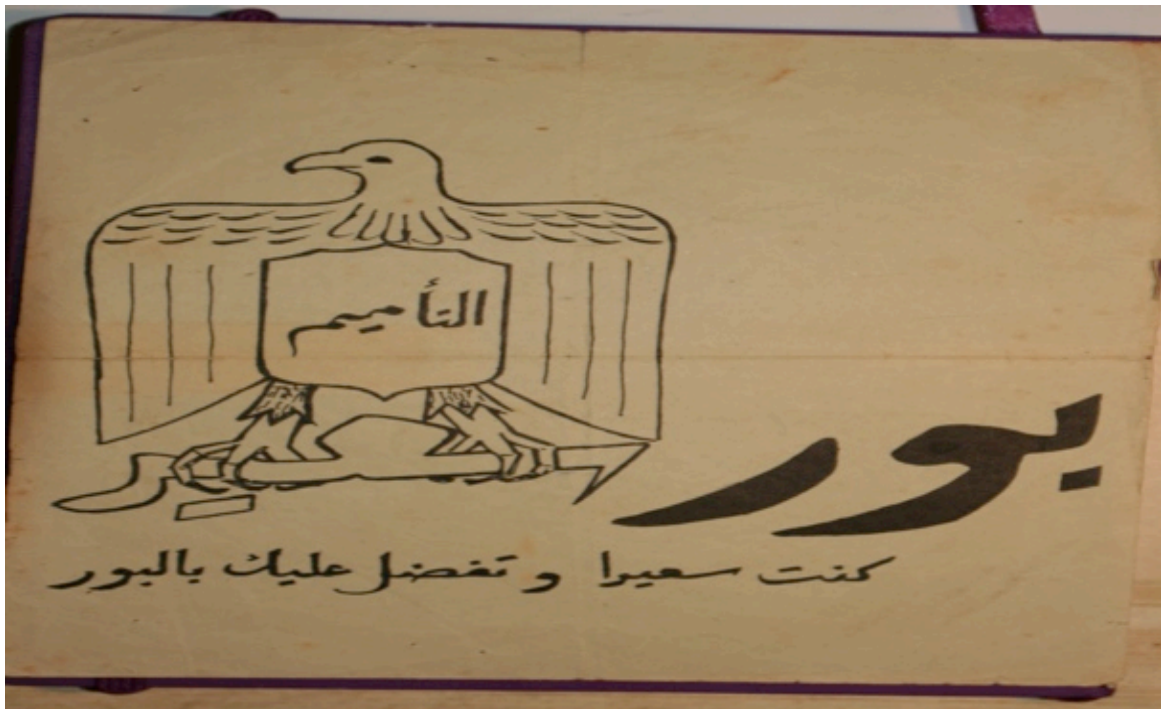 التأميم
بور
كنت سعيدا و تفضل عليك بالبور